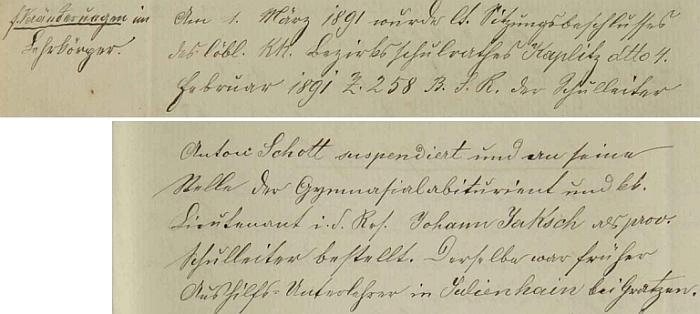 f. Veränderungen im
Lehrkörper.
Am 1. März 1891 wurde lt. Sitzungsbeschlusses
des löbl. kk. Bezirksschulrathes Kaplitz dtto 4.
Februar 1891 Z. 258 B. S. R. der Schulleiter
Anton Schott suspendiert und an seine
Stelle der Gymnasialabiturient und kk.
Lieutenant i. d. Res. Johann Jaksch als prov.
Schulleiter bestellt. Derselbe war früher
Aushilfs-Unterlehrer in Julienhain bei Gratzen.